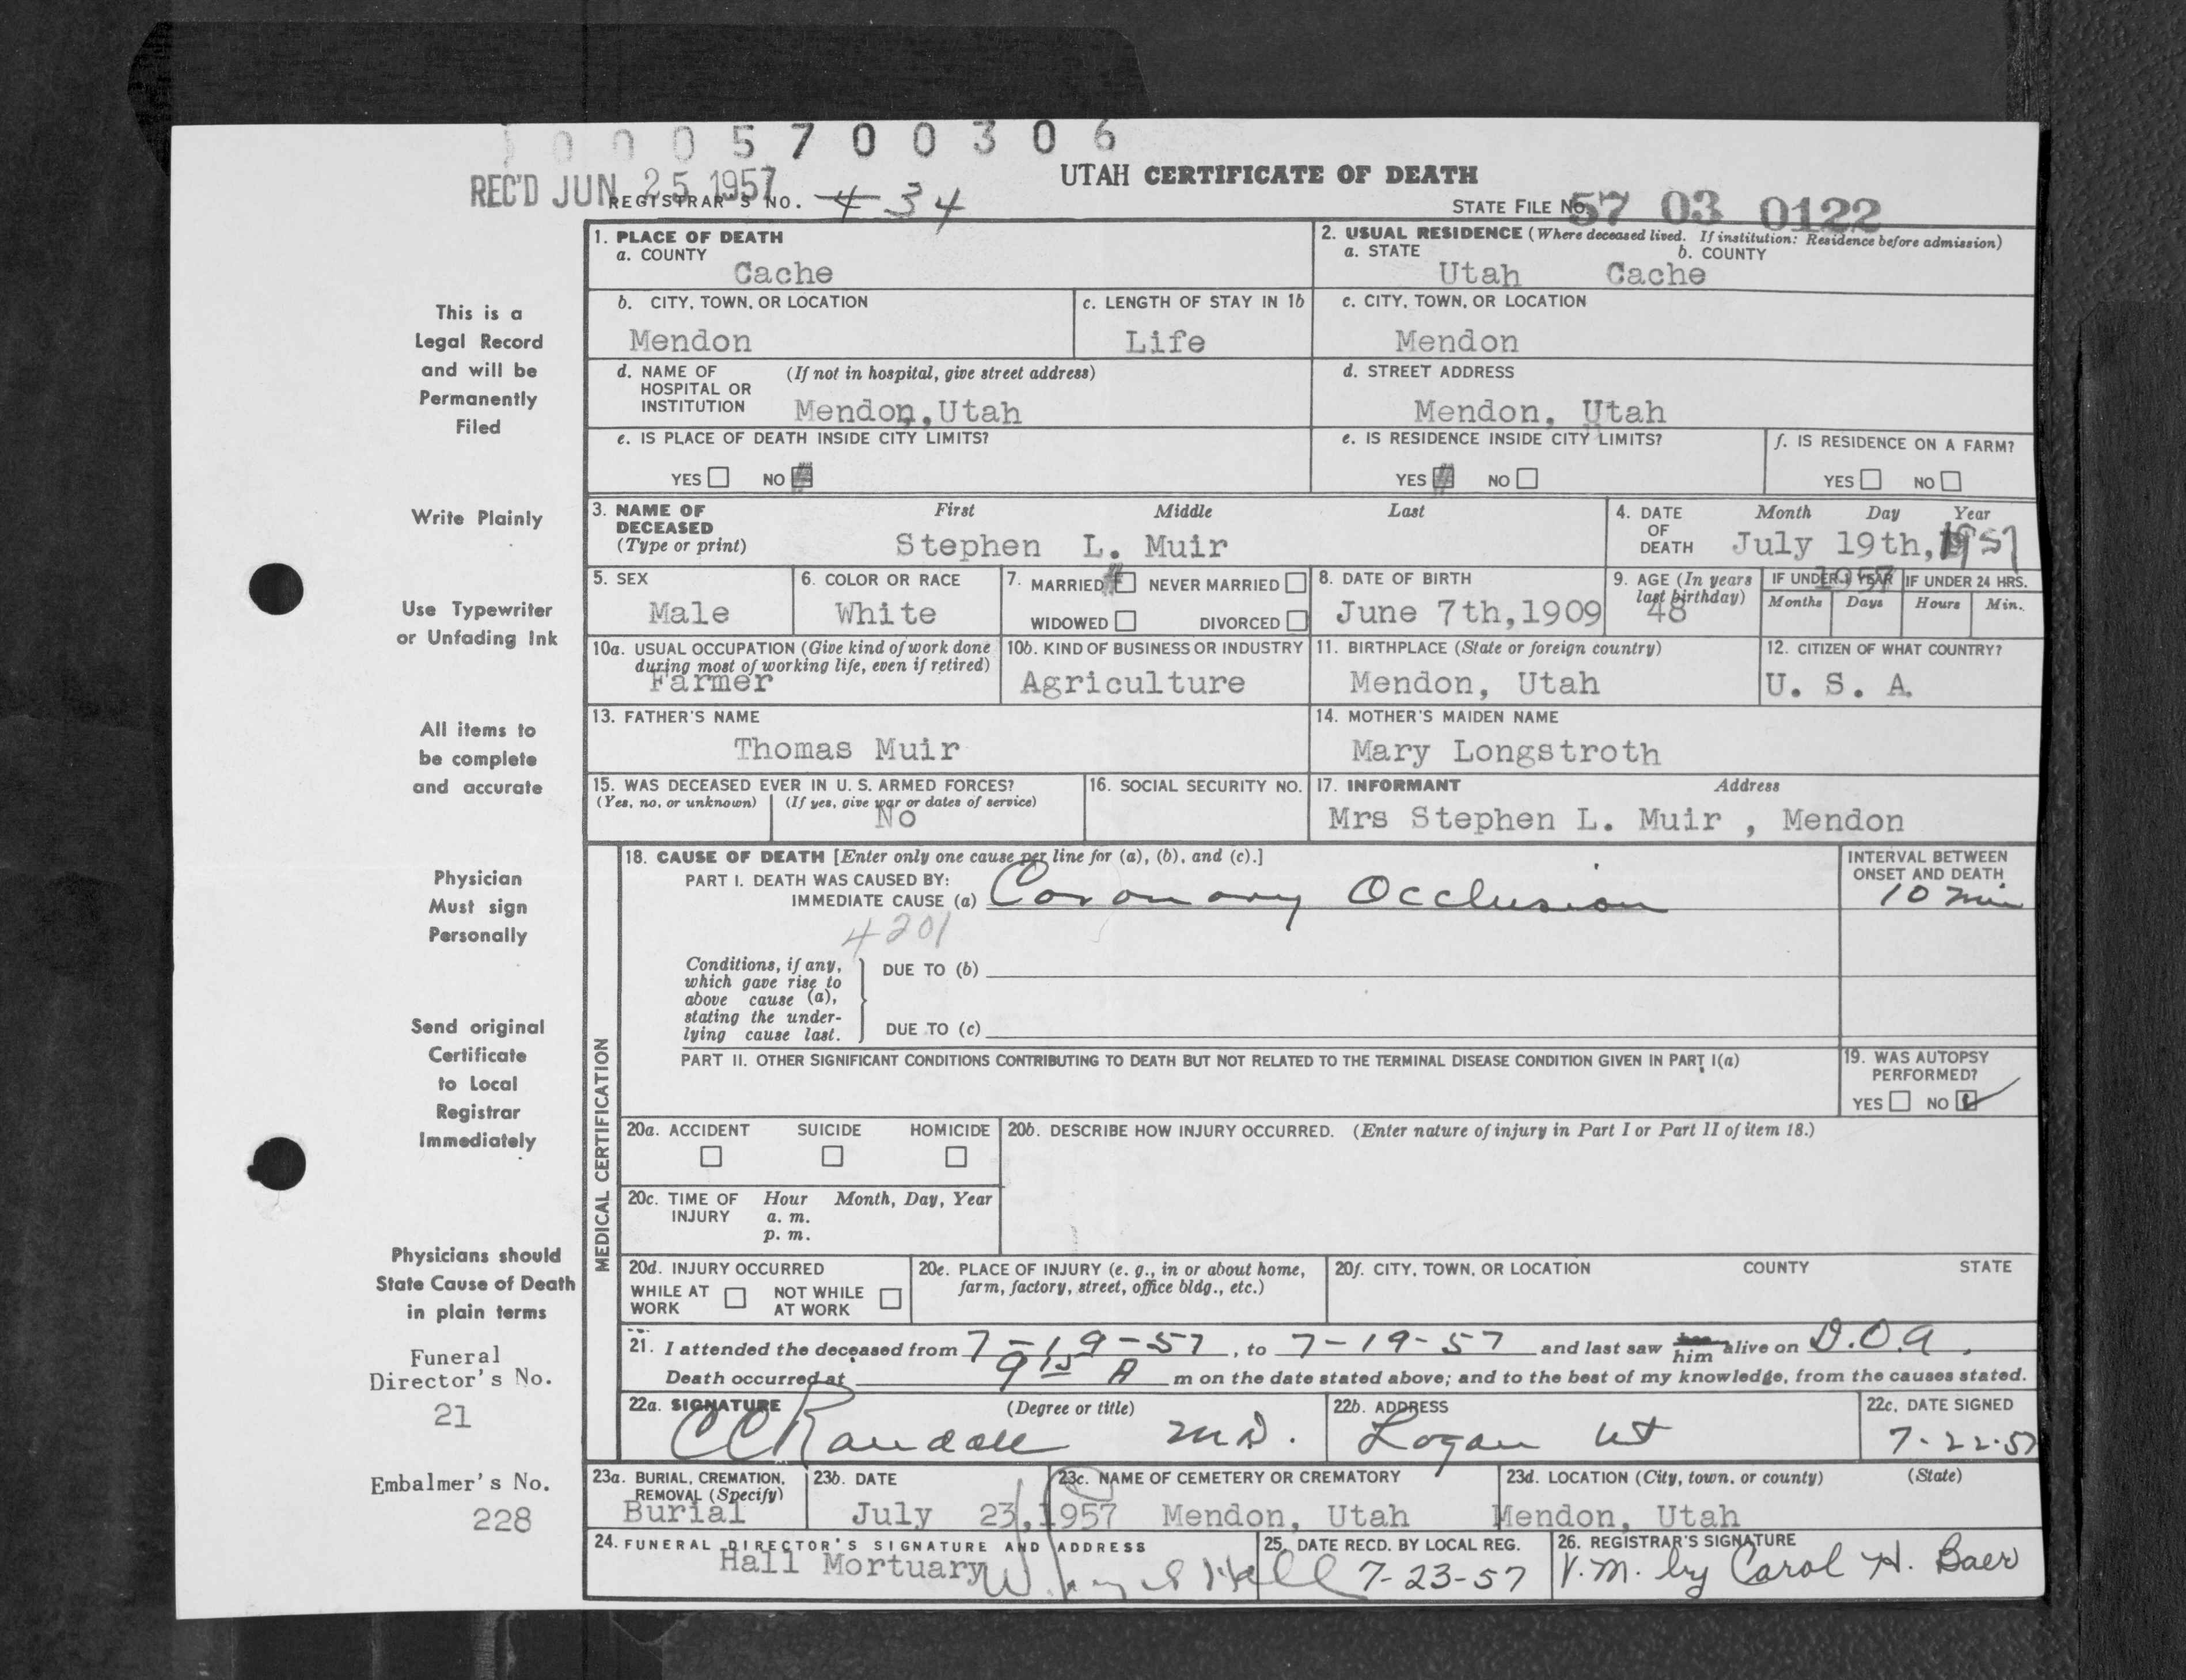 1 0 0 0 5 7 0 0 3 0 6
REC'D JUN 25 1957
UTAH CERTIFICATE OF DEATH
REGISTRAR'S NO. 434
STATE FILE NO. 57 03 0122
1. PLACE OF DEATH
a. COUNTY
Cache
2. USUAL RESIDENCE (Where deceased lived. If institution: Residence before admission)
a. STATE b. COUNTY
Utah Cache
b. CITY, TOWN, OR LOCATION
Mendon
c. LENGTH OF STAY IN 1b
Life
c. CITY, TOWN, OR LOCATION
Mendon
d. NAME OF (If not in hospital, give street address)
HOSPITAL OR
INSTITUTION Mendon, Utah
d. STREET ADDRESS
Mendon, Utah
e. IS PLACE OF DEATH INSIDE CITY LIMITS?
YES NO
e. IS RESIDENCE INSIDE CITY LIMITS?
YES NO
f. IS RESIDENCE ON A FARM?
YES NO
3. NAME OF First Middle Last
DECEASED
(Type or print) Stephen L. Muir
4. DATE Month Day Year
OF
DEATH July 19th, 1957
1957
5. SEX
Male
6. COLOR OR RACE
White
7. MARRIED NEVER MARRIED
WIDOWED DIVORCED
8. DATE OF BIRTH
June 7th, 1909
9. AGE (In years
last birthday)
48
IF UNDER 1 YEAR
Months Days
IF UNDER 24 HRS.
Hours Min.
10a. USUAL OCCUPATION (Give kind of work done
during most of working life, even if retired)
Farmer
10b. KIND OF BUSINESS OR INDUSTRY
Agriculture
11. BIRTHPLACE (State or foreign country)
Mendon, Utah
12. CITIZEN OF WHAT COUNTRY?
U. S. A.
13. FATHER'S NAME
Thomas Muir
14. MOTHER'S MAIDEN NAME
Mary Longstroth
15. WAS DECEASED EVER IN U. S. ARMED FORCES?
(Yes, no, or unknown) (If yes, give war or dates of service)
No
16. SOCIAL SECURITY NO.
17. INFORMANT Address
Mrs Stephen L. Muir , Mendon
MEDICAL CERTIFICATION
18. CAUSE OF DEATH [Enter only one cause per line for (a), (b), and (c).]
PART I. DEATH WAS CAUSED BY:
IMMEDIATE CAUSE (a) Coronary Occlusion
4201
INTERVAL BETWEEN
ONSET AND DEATH
10 min
Conditions, if any,
which gave rise to
above cause (a),
stating the under-
lying cause last.
DUE TO (b)
DUE TO (c)
PART II. OTHER SIGNIFICANT CONDITIONS CONTRIBUTING TO DEATH BUT NOT RELATED TO THE TERMINAL DISEASE CONDITION GIVEN IN PART I(a)
19. WAS AUTOPSY
PERFORMED?
YES NO
20a. ACCIDENT SUICIDE HOMICIDE
20b. DESCRIBE HOW INJURY OCCURRED. (Enter nature of injury in Part I or Part II of item 18.)
20c. TIME OF Hour Month, Day, Year
INJURY a. m.
p. m.
20d. INJURY OCCURRED
WHILE AT NOT WHILE
WORK AT WORK
20e. PLACE OF INJURY (e. g., in or about home,
farm, factory, street, office bldg., etc.)
20f. CITY, TOWN, OR LOCATION COUNTY STATE
21. I attended the deceased from 7-19-57, to 7-19-57 and last saw him alive on D.O.A.
Death occurred at 9 15 A m on the date stated above; and to the best of my knowledge, from the causes stated.
22a. SIGNATURE (Degree or title)
CC Randall M.D.
22b. ADDRESS
Logan Ut
22c. DATE SIGNED
7-22-57
23a. BURIAL, CREMATION,
REMOVAL (Specify)
Burial
23b. DATE
July 23, 1957
23c. NAME OF CEMETERY OR CREMATORY
Mendon, Utah
23d. LOCATION (City, town, or county) (State)
Mendon, Utah
24. FUNERAL DIRECTOR'S SIGNATURE AND ADDRESS
Hall Mortuary Hall
25. DATE RECD. BY LOCAL REG.
7-23-57
26. REGISTRAR'S SIGNATURE
V.M. by Carol H. Baer
This is a
Legal Record
and will be
Permanently
Filed
Write Plainly
Use Typewriter
or Unfading Ink
All items to
be complete
and accurate
Physician
Must sign
Personally
Send original
Certificate
to Local
Registrar
Immediately
Physicians should
State Cause of Death
in plain terms
Funeral
Director's No.
21
Embalmer's No.
228